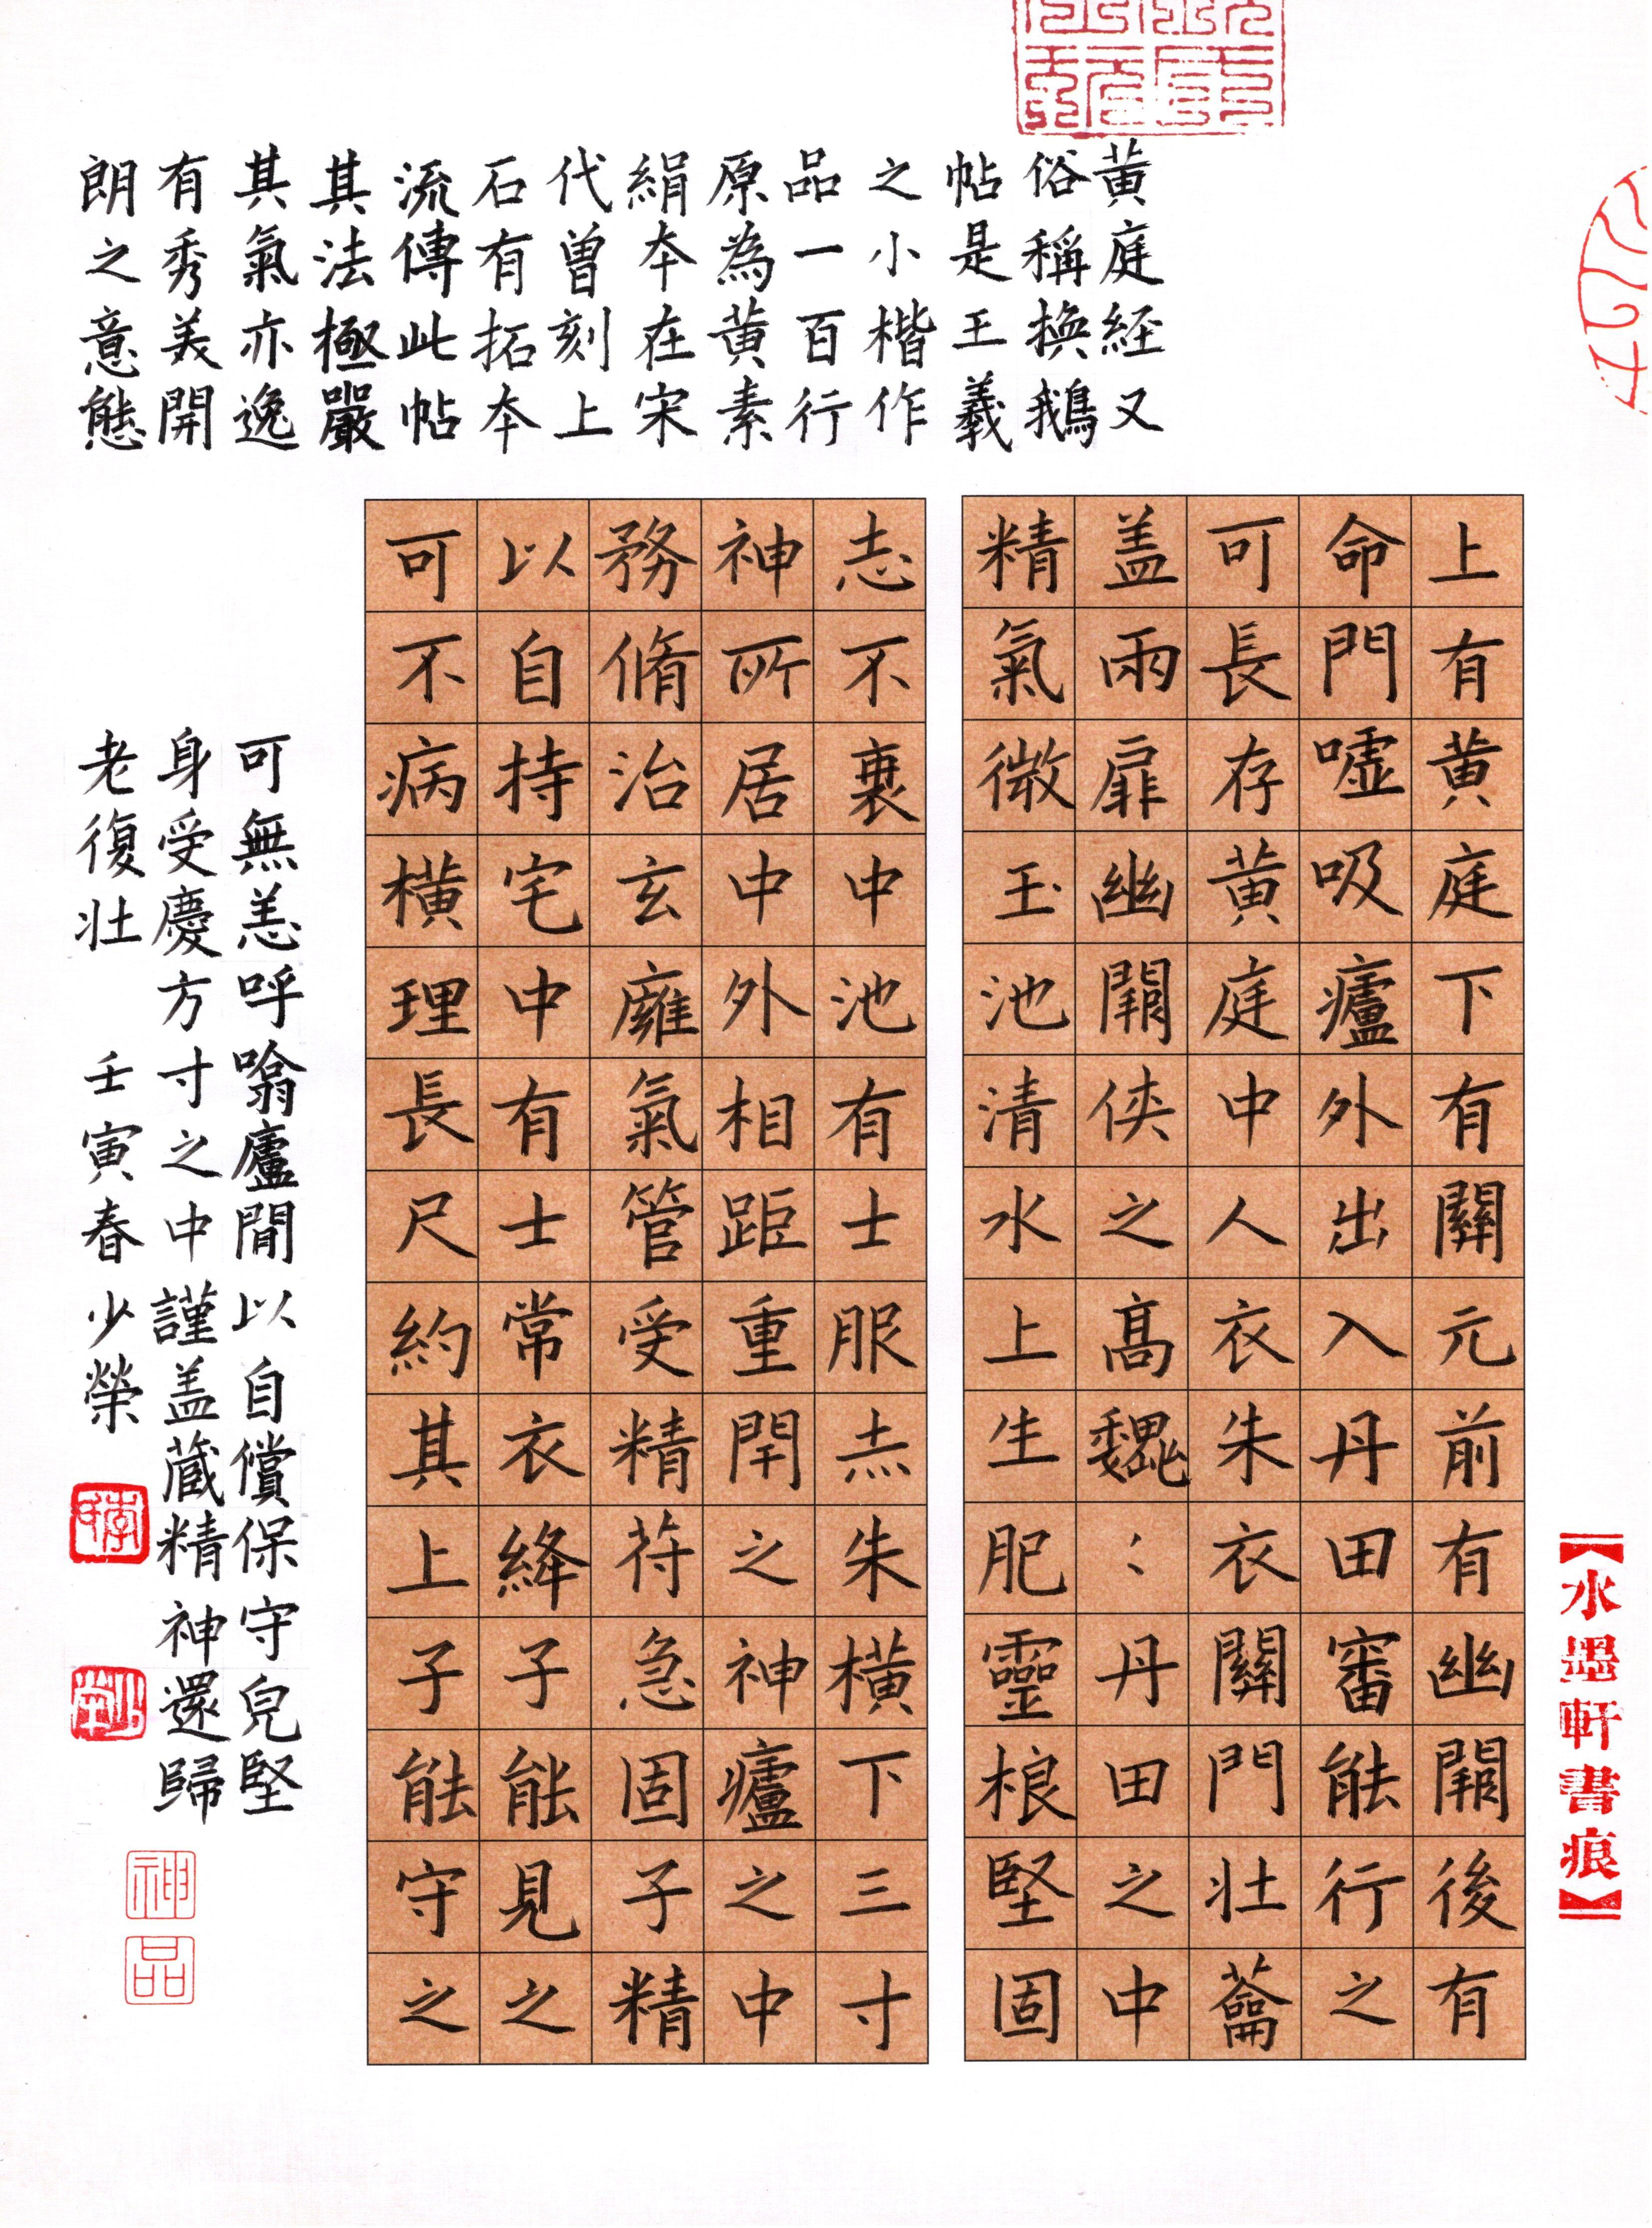 黄庭経又
俗稱換鵝
帖是王羲
之小楷作
品一百行
原為黄素
絹夲在宋
代曾刻上
石有拓夲
流傳此帖
其法極嚴
其氣亦逸
有秀美開
朗之意態
上有黄庭下有關元前有幽闕後有
命門噓吸廬外出入丹田審能行之
可長存黄庭中人衣朱衣關門壯蘥
盖兩扉幽闕俠之高巍〻丹田之中
精氣微玉池清水上生肥靈根堅固
志不衰中池有士服赤朱横下三寸
神所居中外相距重閇之神廬之中
務脩治玄廱氣管受精苻急固子精
以自持宅中有士常衣絳子能見之
可不病横理長尺約其上子能守之
可無恙呼噏廬間以自償保守皃堅
身受慶方寸之中謹盖藏精神還歸
老復壯 壬寅春 少榮
神品
【水墨軒書痕】